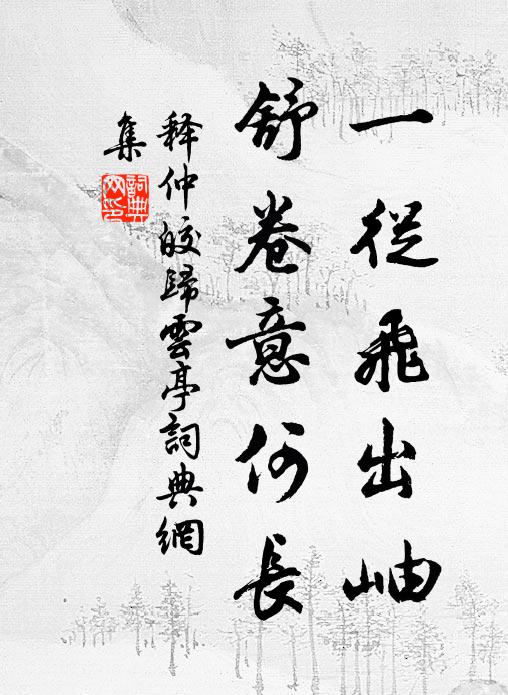 一從飛出岫
舒卷意何長
释仲皎歸雲亭詞典網
集
詞典網印